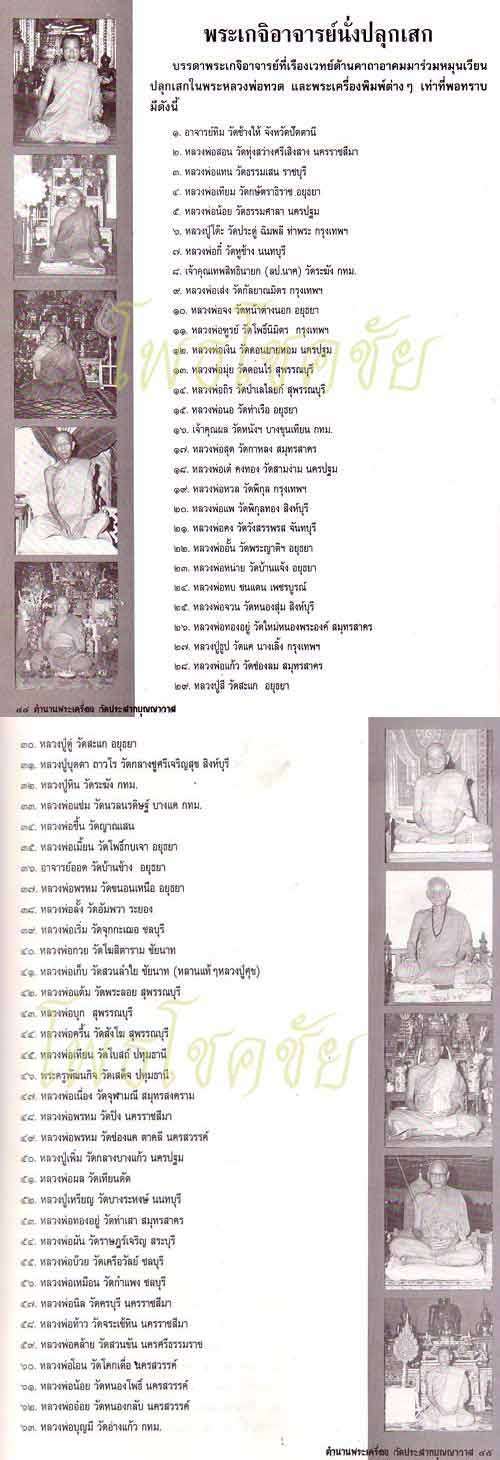 พระเกจิอาจารย์นั่งปลุกเสก
บรรดาพระเกจิอาจารย์ที่เรืองเวทย์ด้านคาถาอาคมมาร่วมหมุนเวียน
ปลุกเสกในพระหลวงพ่อทวด และพระเครื่องพิมพ์ต่างๆ เท่าที่พอทราบ
มีดังนี้
๑. อาจารย์ทิม วัดช้างให้ จังหวัดปัตตานี
๒. หลวงพ่อสอน วัดทุ่งสว่างศรีเสิงสาง นครราชสีมา
๓. หลวงพ่อแทน วัดธรรมเสน ราชบุรี
๔. หลวงพ่อเทียม วัดกษัตราธิราช อยุธยา
๕. หลวงพ่อน้อย วัดธรรมศาลา นครปฐม
๖. หลวงปู่โต๊ะ วัดประดู่ ฉิมพลี ท่าพระ กรุงเทพฯ
๗. หลวงพ่อกี๋ วัดหูช้าง นนทบุรี
๘. เจ้าคุณเทพสิทธินายก (ลป.นาค) วัดระฆัง กทม.
๙. หลวงพ่อเส่ง วัดกัลยาณมิตร กรุงเทพฯ
๑๐. หลวงพ่อจง วัดหน้าต่างนอก อยุธยา
๑๑. หลวงพ่อฑูรย์ วัดโพธิ์นิมิตร กรุงเทพฯ
๑๒. หลวงพ่อเงิน วัดดอนยายหอม นครปฐม
๑๓. หลวงพ่อมุ่ย วัดดอนไร่ สุพรรณบุรี
๑๔. หลวงพ่อถิร วัดป่าเลไลยก์ สุพรรณบุรี
๑๕. หลวงพ่อนอ วัดท่าเรือ อยุธยา
๑๖. เจ้าคุณผล วัดหนังฯ บางขุนเทียน กทม.
๑๗. หลวงพ่อสุด วัดกาหลง สมุทรสาคร
๑๘. หลวงพ่อเต๋ คงทอง วัดสามง่าม นครปฐม
๑๙. หลวงพ่อหวล วัดพิกุล กรุงเทพฯ
๒๐. หลวงพ่อแพ วัดพิกุลทอง สิงห์บุรี
๒๑. หลวงพ่อคง วัดวังสรรพรส จันทบุรี
๒๒. หลวงพ่ออั้น วัดพระญาติฯ อยุธยา
๒๓. หลวงพ่อหน่าย วัดบ้านแจ้ง อยุธยา
๒๔. หลวงพ่อทบ ชนแดน เพชรบูรณ์
๒๕. หลวงพ่อจวน วัดหนองสุ่ม สิงห์บุรี
๒๖. หลวงพ่อทองอยู่ วัดใหม่หนองพระองค์ สมุทรสาคร
๒๗. หลวงปู่ธูป วัดแค นางเลิ้ง กรุงเทพฯ
๒๘. หลวงพ่อแก้ว วัดช่องลม สมุทรสาคร
๒๙. หลวงปู่สี วัดสะแก อยุธยา
๔๔ ตำนานพระเครื่อง วัดประสาทบุญญาวาส
๓๐. หลวงปู่ดู่ วัดสะแก อยุธยา
๓๑. หลวงปู่บุดดา ถาวโร วัดกลางชูศรีเจริญสุข สิงห์บุรี
๓๒. หลวงปู่หิน วัดระฆัง กทม.
๓๓. หลวงพ่อแช่ม วัดนวลนรดิษฐ์ บางแค กทม.
๓๔. หลวงพ่อขึ้น วัดญาณเสน
๓๕. หลวงพ่อเมี้ยน วัดโพธิ์กบเจา อยุธยา
๓๖. อาจารย์ออด วัดบ้านช้าง อยุธยา
๓๗. หลวงพ่อพรหม วัดขนอนเหนือ อยุธยา
๓๘. หลวงพ่อลั้ง วัดอัมพวา ระยอง
๓๙. หลวงพ่อเริ่ม วัดจุกกะเฌอ ชลบุรี
๔๐. หลวงพ่อกวย วัดโฆสิตาราม ชัยนาท
๔๑. หลวงพ่อเก็บ วัดสวนลำใย ชัยนาท (หลานแท้ๆหลวงปู่ศุข)
๔๒. หลวงพ่อแต้ม วัดพระลอย สุพรรณบุรี
๔๓. หลวงพ่อบุก สุพรรณบุรี
๔๔. หลวงพ่อครื้น วัดสังโฆ สุพรรณบุรี
๔๕. หลวงพ่อเทียน วัดโบสถ์ ปทุมธานี
๔๖. พระครูพัฒนกิจ วัดเสด็จ ปทุมธานี
๔๗. หลวงพ่อเนื่อง วัดจุฬามณี สมุทรสงคราม
๔๘. หลวงพ่อพรหม วัดปิง นครราชสีมา
๔๙. หลวงพ่อพรหม วัดช่องแค ตาคลี นครสวรรค์
๕๐. หลวงปู่เพิ่ม วัดกลางบางแก้ว นครปฐม
๕๑. หลวงพ่อผล วัดเทียนดัด
๕๒. หลวงปู่เหรียญ วัดบางระหงษ์ นนทบุรี
๕๓. หลวงพ่อทองอยู่ วัดท่าเสา สมุทรสาคร
๕๔. หลวงพ่อผัน วัดราษฎร์เจริญ สระบุรี
๕๕. หลวงพ่อบ๊วย วัดเครือวัลย์ ชลบุรี
๕๖. หลวงพ่อเหมือน วัดกำแพง ชลบุรี
๕๗. หลวงพ่อนิล วัดครบุรี นครราชสีมา
๕๘. หลวงพ่อท้าว วัดจระเข้หิน นครราชสีมา
๕๙. หลวงพ่อคล้าย วัดสวนขัน นครศรีธรรมราช
๖๐. หลวงพ่อโอน วัดโคกเดื่อ นครสวรรค์
๖๑. หลวงพ่อน้อย วัดหนองโพธิ์ นครสวรรค์
๖๒. หลวงพ่ออ๋อย วัดหนองกลับ นครสวรรค์
๖๓. หลวงพ่อบุญมี วัดอ่างแก้ว กทม.
ตำนานพระเครื่อง วัดประสาทบุญญาวาส ๔๕
โพธิ์โชคชัย
โพธิ์โชคชัย